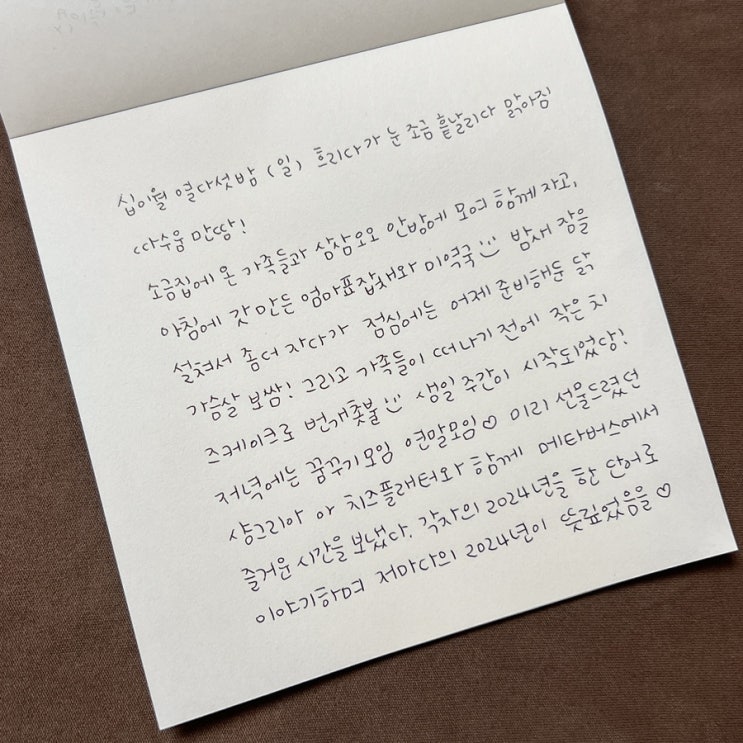 십이월 열다섯밤 (일) 흐리다가 눈 조금 흩날리다 맑아짐
따수움 만땅!
소금집에 온 가족들과 삼삼오오 안방에 모여 함께 자고,
아침에 갓 만든 엄마표잡채와 미역국 :) 밤새 잠을
설쳐서 좀더 자다가 점심에는 어제 준비해둔 닭
가슴살 보쌈! 그리고 가족들이 떠나기 전에 작은 치
즈케이크로 번개촛불 :) 생일 주간이 시작되었당!
저녁에는 꿈꾸기모임 연말모임♡ 미리 선물드렸던
샹그리아 와 치즈플래터와 함께 메타버스에서
즐거운 시간을 보냈다. 각자의 2024년을 한 단어로
이야기하며 저마다의 2024년이 뜻깊었음을♡